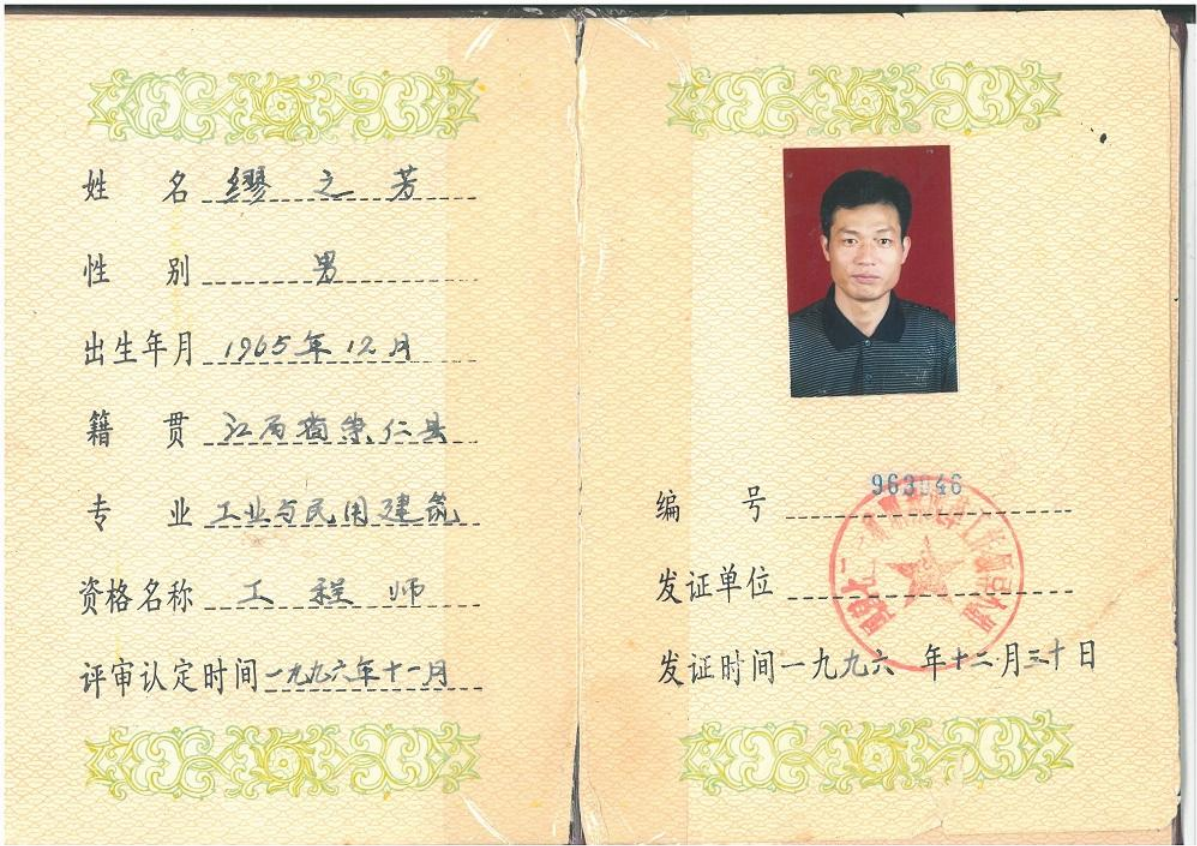 姓 名 缪之芳
性 别 男
出生年月 1965年12月
籍 贯 江西省崇仁县
专 业 工业与民用建筑
资格名称 工程师
评审认定时间 一九九六年十一月
编 号 963046
发证单位
发证时间 一九九六 年十二月三十日